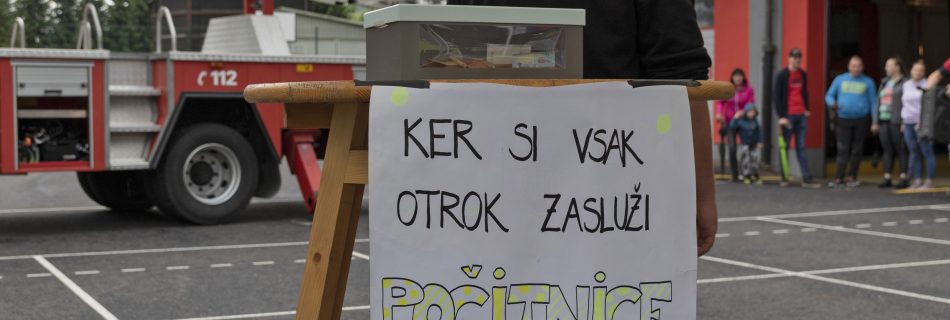 112
KER SI VSAK
OTROK ZASLUŽI
POČITNICE